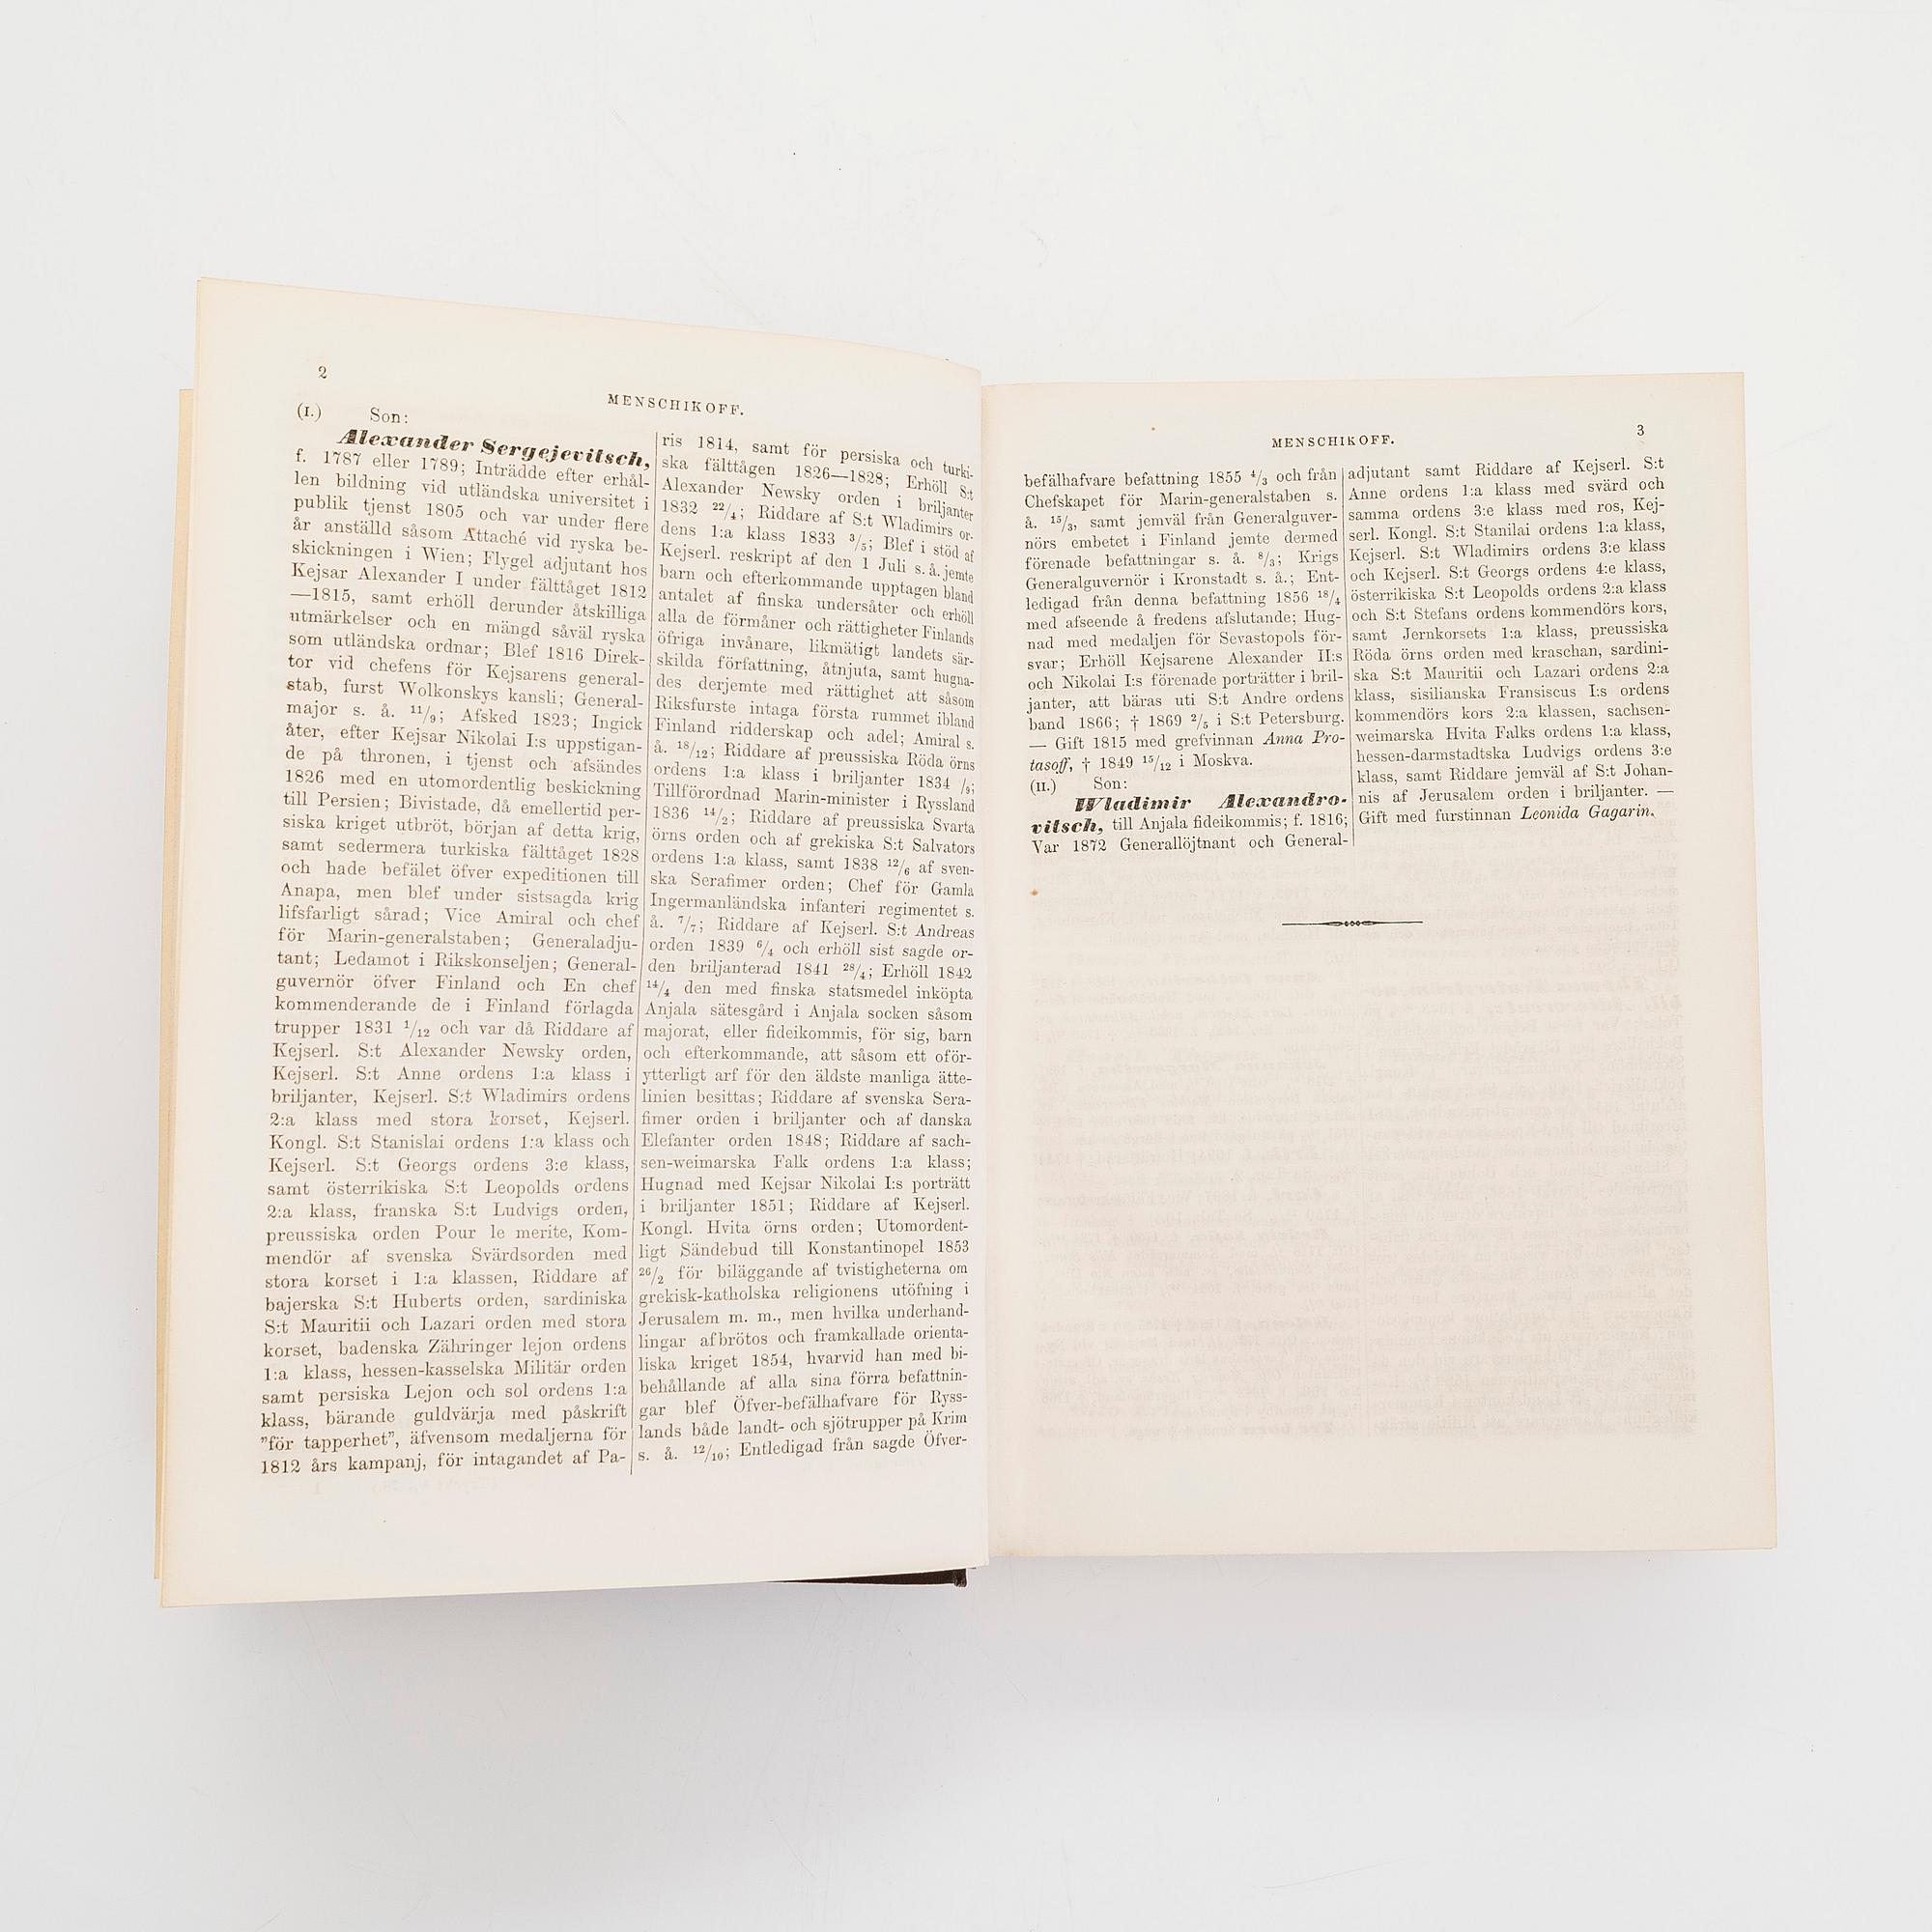 2
MENSCHIKOFF.
(I.) Son:
Alexander Sergejevitsch,
f. 1787 eller 1789; Inträdde efter erhål-
len bildning vid utländska universitet i
publik tjenst 1805 och var under flere
år anställd såsom Attaché vid ryska be-
skickningen i Wien; Flygel adjutant hos
Kejsar Alexander I under fälttåget 1812
—1815, samt erhöll derunder åtskilliga
utmärkelser och en mängd såväl ryska
som utländska ordnar; Blef 1816 Direk-
tor vid chefens för Kejsarens general-
stab, furst Wolkonskys kansli; General-
major s. å. 11/9; Afsked 1823; Ingick
åter, efter Kejsar Nikolai I:s uppstigan-
de på thronen, i tjenst och afsändes
1826 med en utomordentlig beskickning
till Persien; Bivistade, då emellertid per-
siska kriget utbröt, början af detta krig,
samt sedermera turkiska fälttåget 1828
och hade befälet öfver expeditionen till
Anapa, men blef under sistsagda krig
lifsfarligt sårad; Vice Amiral och chef
för Marin-generalstaben; Generaladju-
tant; Ledamot i Rikskonseljen; General-
guvernör öfver Finland och En chef
kommenderande de i Finland förlagda
trupper 1831 1/12 och var då Riddare af
Kejserl. S:t Alexander Newsky orden,
Kejserl. S:t Anne ordens 1:a klass i
briljanter, Kejserl. S:t Wladimirs ordens
2:a klass med stora korset, Kejserl.
Kongl. S:t Stanislai ordens 1:a klass och
Kejserl. S:t Georgs ordens 3:e klass,
samt österrikiska S:t Leopolds ordens
2:a klass, franska S:t Ludvigs orden,
preussiska orden Pour le merite, Kom-
mendör af svenska Svärdsorden med
stora korset i 1:a klassen, Riddare af
bajerska S:t Huberts orden, sardiniska
S:t Mauritii och Lazari orden med stora
korset, badenska Zähringer lejon ordens
1:a klass, hessen-kasselska Militär orden
samt persiska Lejon och sol ordens 1:a
klass, bärande guldvärja med påskrift
”för tapperhet”, äfvensom medaljerna för
1812 års kampanj, för intagandet af Pa-
ris 1814, samt för persiska och turki-
ska fälttågen 1826—1828; Erhöll S:t
Alexander Newsky orden i briljanter
1832 22/4; Riddare af S:t Wladimirs or-
dens 1:a klass 1833 3/5; Blef i stöd af
Kejserl. reskript af den 1 Juli s. å. jemte
barn och efterkommande upptagen bland
antalet af finska undersåter och erhöll
alla de förmåner och rättigheter Finlands
öfriga invånare, likmätigt landets sär-
skilda författning, åtnjuta, samt hugna-
des derjemte med rättighet att såsom
Riksfurste intaga första rummet ibland
Finland ridderskap och adel; Amiral s.
å. 18/12; Riddare af preussiska Röda örns
ordens 1:a klass i briljanter 1834 /9;
Tillförordnad Marin-minister i Ryssland
1836 14/2; Riddare af preussiska Svarta
örns orden och af grekiska S:t Salvators
ordens 1:a klass, samt 1838 12/6 af sven-
ska Serafimer orden; Chef för Gamla
Ingermanländska infanteri regimentet s.
å. 7/7; Riddare af Kejserl. S:t Andreas
orden 1839 6/4 och erhöll sist sagde or-
den briljanterad 1841 28/4; Erhöll 1842
14/4 den med finska statsmedel inköpta
Anjala sätesgård i Anjala socken såsom
majorat, eller fideikommis, för sig, barn
och efterkommande, att såsom ett oför-
ytterligt arf för den äldste manliga ätte-
linien besittas; Riddare af svenska Sera-
fimer orden i briljanter och af danska
Elefanter orden 1848; Riddare af sach-
sen-weimarska Falk ordens 1:a klass;
Hugnad med Kejsar Nikolai I:s porträtt
i briljanter 1851; Riddare af Kejserl.
Kongl. Hvita örns orden; Utomordent-
ligt Sändebud till Konstantinopel 1853
26/2 för biläggande af tvistigheterna om
grekisk-katholska religionens utöfning i
Jerusalem m. m., men hvilka underhand-
lingar afbrötos och framkallade orienta-
liska kriget 1854, hvarvid han med bi-
behållande af alla sina förra befattnin-
gar blef Öfver-befälhafvare för Ryss-
lands både landt- och sjötrupper på Krim
s. å. 12/10; Entledigad från sagde Öfver-
MENSCHIKOFF.
3
befälhafvare befattning 1855 4/3 och från
Chefskapet för Marin-generalstaben s.
å. 15/3, samt jemväl från Generalguver-
nörs embetet i Finland jemte dermed
förenade befattningar s. å. 8/3; Krigs
Generalguvernör i Kronstadt s. å.; Ent-
ledigad från denna befattning 1856 18/4
med afseende å fredens afslutande; Hug-
nad med medaljen för Sevastopols för-
svar; Erhöll Kejsarene Alexander II:s
och Nikolai I:s förenade porträtter i bril-
janter, att bäras uti S:t Andre ordens
band 1866; † 1869 2/5 i S:t Petersburg.
— Gift 1815 med grefvinnan Anna Pro-
tasoff, † 1849 15/12 i Moskva.
(II.) Son:
Wladimir Alexandro-
vitsch, till Anjala fideikommis; f. 1816;
Var 1872 Generallöjtnant och General-
adjutant samt Riddare af Kejserl. S:t
Anne ordens 1:a klass med svärd och
samma ordens 3:e klass med ros, Kej-
serl. Kongl. S:t Stanilai ordens 1:a klass,
Kejserl. S:t Wladimirs ordens 3:e klass
och Kejserl. S:t Georgs ordens 4:e klass,
österrikiska S:t Leopolds ordens 2:a klass
och S:t Stefans ordens kommendörs kors,
samt Jernkorsets 1:a klass, preussiska
Röda örns orden med kraschan, sardini-
ska S:t Mauritii och Lazari ordens 2:a
klass, sisilianska Fransiscus I:s ordens
kommendörs kors 2:a klassen, sachsen-
weimarska Hvita Falks ordens 1:a klass,
hessen-darmstadtska Ludvigs ordens 3:e
klass, samt Riddare jemväl af S:t Johan-
nis af Jerusalem orden i briljanter. —
Gift med furstinnan Leonida Gagarin.